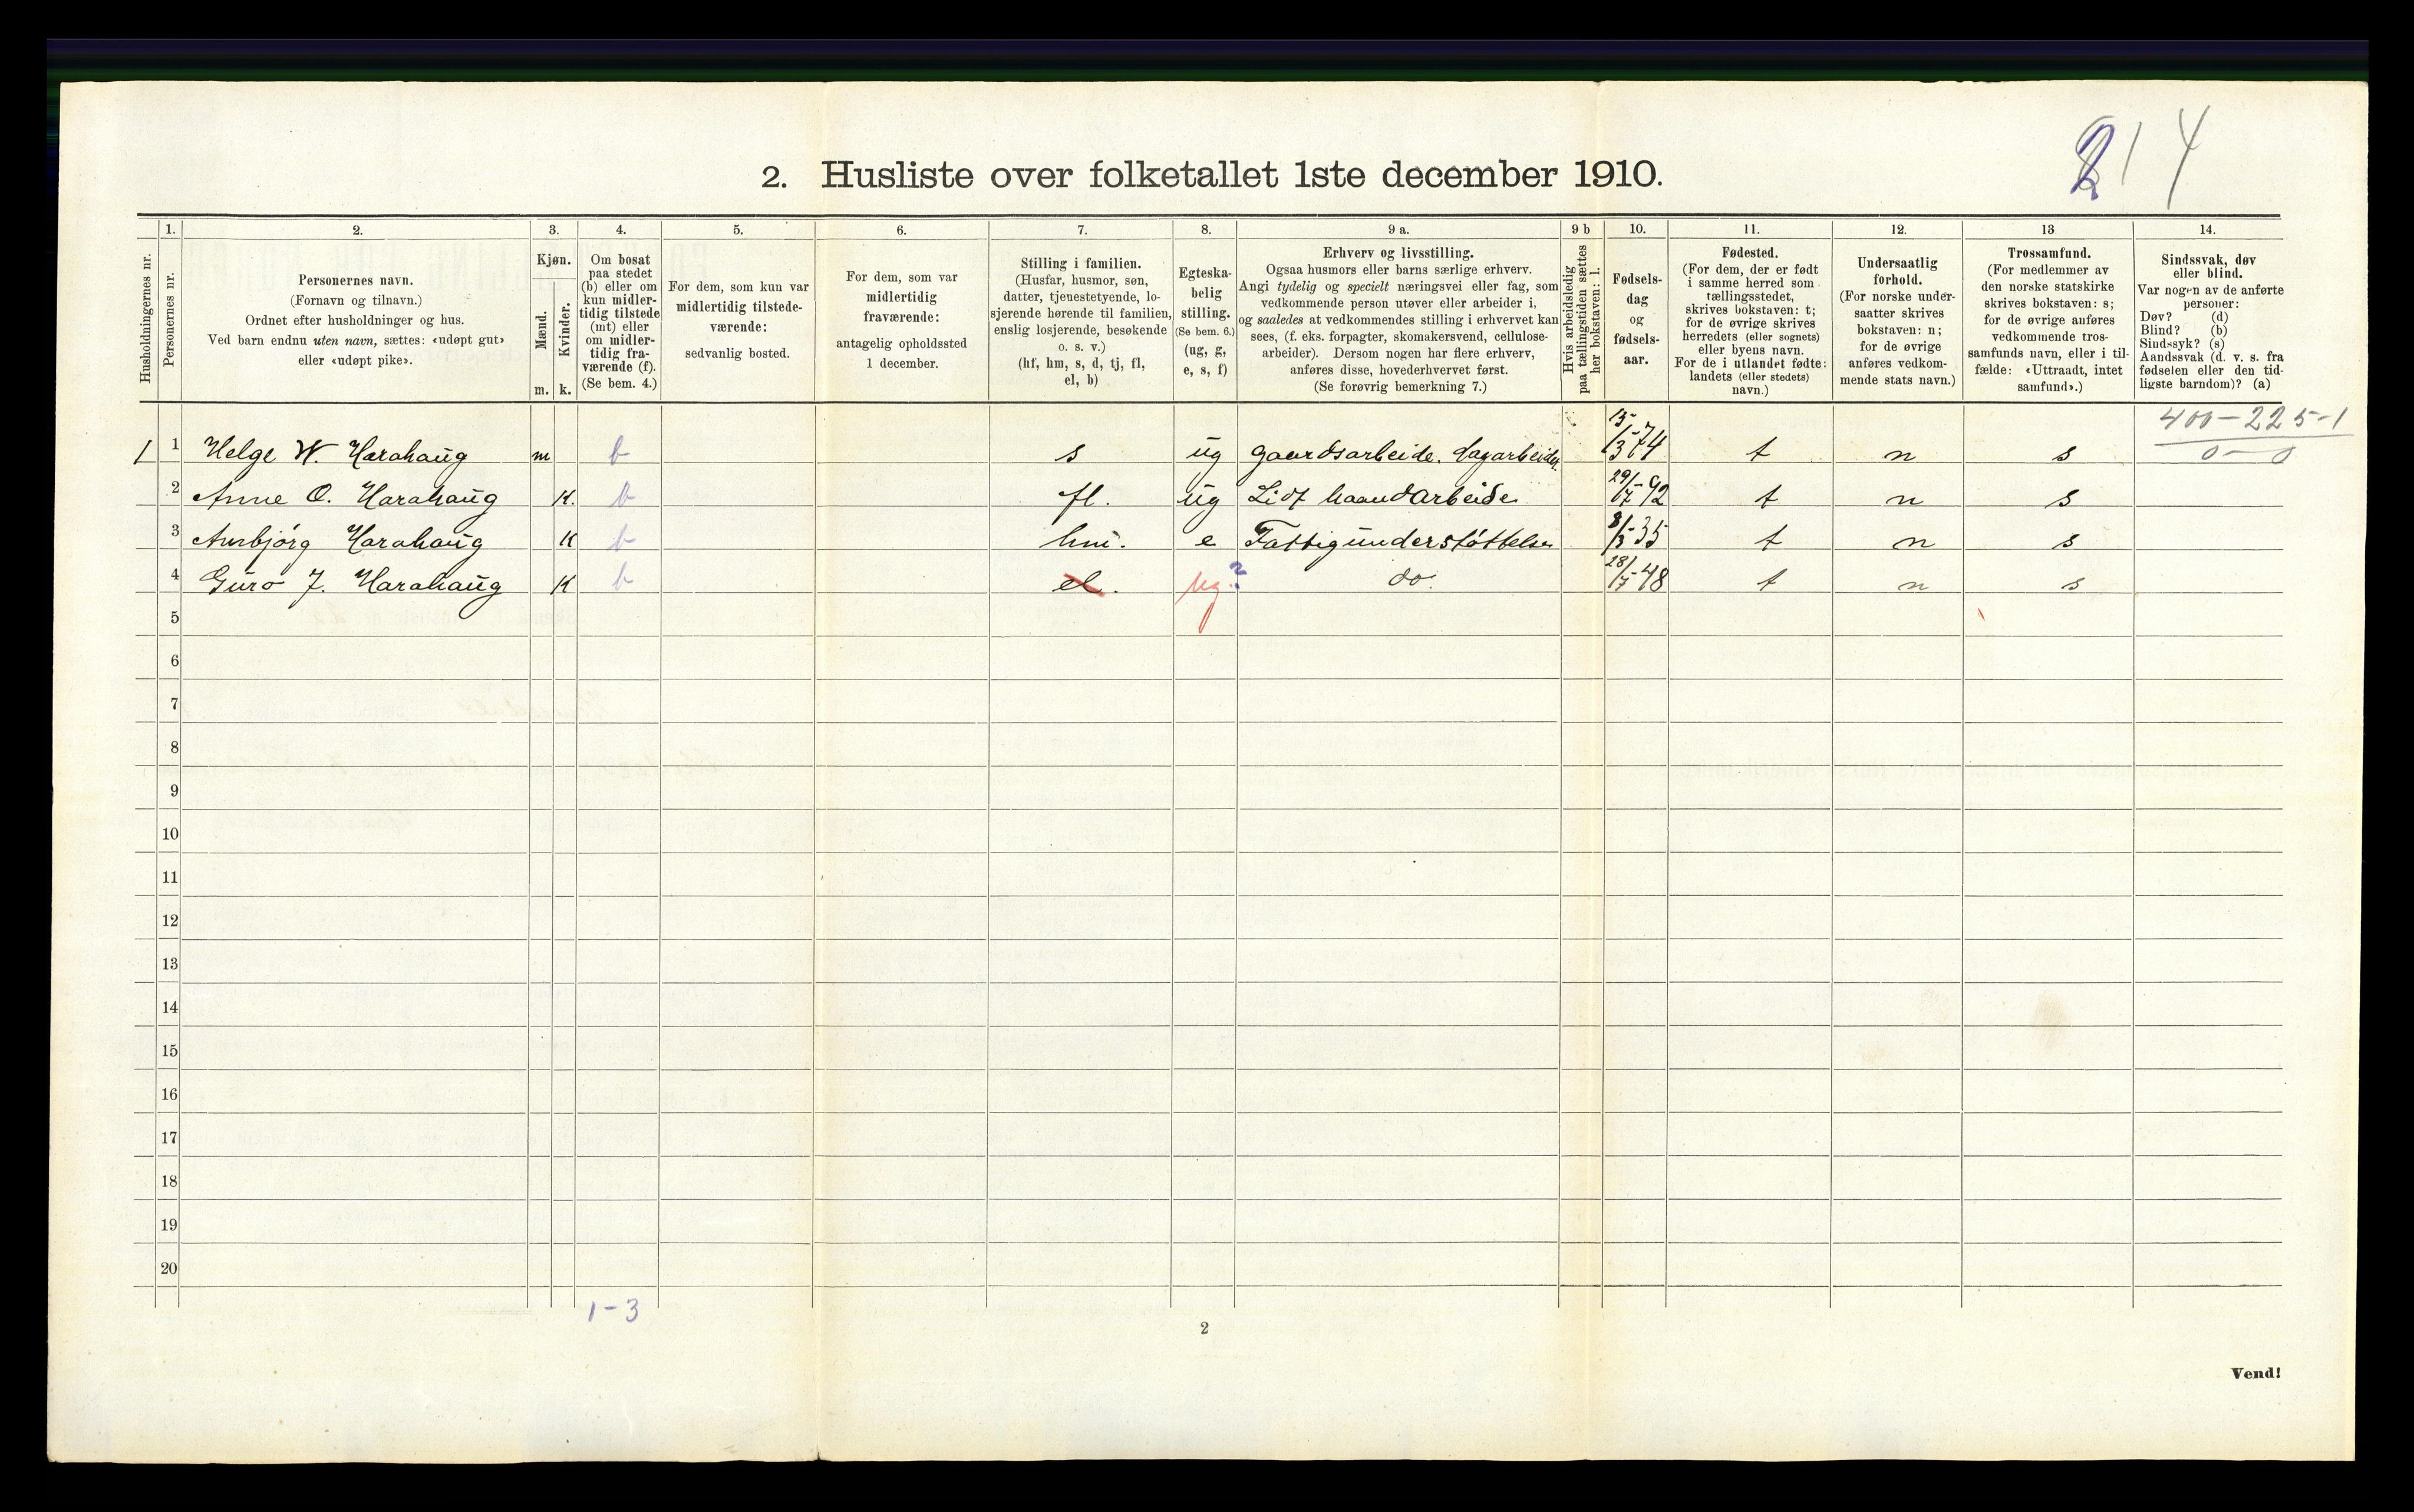 214
2. Husliste over folketallet 1ste december 1910.
Husholdningernes nr.
1.
Personernes nr.
2.
Personernes navn.
(Fornavn og tilnavn.)
Ordnet efter husholdninger og hus.
Ved barn endnu uten navn, sættes: «udøpt gut»
eller «udøpt pike».
3.
Kjøn.
Mænd.
m.
Kvinder.
k.
4.
Om bosat
paa stedet
(b) eller om
kun midler-
tidig tilstede
(mt) eller
om midler-
tidig fra-
værende (f).
(Se bem. 4.)
5.
For dem, som kun var
midlertidig tilstede-
værende:
sedvanlig bosted.
6.
For dem, som var
midlertidig
fraværende:
antagelig opholdssted
1 december.
7.
Stilling i familien.
(Husfar, husmor, søn,
datter, tjenestetyende, lo-
sjerende hørende til familien,
enslig losjerende, besøkende
o. s. v.)
(hf, hm, s, d, tj, fl,
el, b)
8.
Egteska-
belig
stilling.
(Se bem. 6.)
(ug, g,
e, s, f)
9 a.
Erhverv og livsstilling.
Ogsaa husmors eller barns særlige erhverv.
Angi tydelig og specielt næringsvei eller fag, som
vedkommende person utøver eller arbeider i,
og saaledes at vedkommendes stilling i erhvervet kan
sees, (f. eks. forpagter, skomakersvend, cellulose-
arbeider). Dersom nogen har flere erhverv,
anføres disse, hovederhvervet først.
(Se forøvrig bemerkning 7.)
9 b
Hvis arbeidsledig
paa tællingstiden sættes
her bokstaven: l.
10.
Fødsels-
dag
og
fødsels-
aar.
11.
Fødested.
(For dem, der er født
i samme herred som
tællingsstedet,
skrives bokstaven: t;
for de øvrige skrives
herredets (eller sognets)
eller byens navn.
For de i utlandet fødte:
landets (eller stedets)
navn.)
12.
Undersaatlig
forhold.
(For norske under-
saatter skrives
bokstaven: n;
for de øvrige
anføres vedkom-
mende stats navn.)
13
Trossamfund.
(For medlemmer av
den norske statskirke
skrives bokstaven: s;
for de øvrige anføres
vedkommende tros-
samfunds navn, eller i til-
fælde: «Uttraadt, intet
samfund».)
14.
Sindssvak, døv
eller blind.
Var nogen av de anførte
personer:
Døv? (d)
Blind? (b)
Sindssyk? (s)
Aandssvak (d. v. s. fra
fødselen eller den tid-
ligste barndom)? (a)
400-225-1
0-0
1 1 Helge W. Harahaug m b s ug gaardsarbeide. dagarbeider 15/3-74 t n s
2 Anne O. Harahaug K. b fl. ug Lidt haandarbeide 29/-92 t n s
3 Ambjörg Harahaug K b hm. e Fattigunderstøttelse 8/3-35 t n s
4 Guro J. Harahaug K b el. ug.? do. 28/7-48 t n s
5
6
7
8
9
10
11
12
13
14
15
16
17
18
19
20
1-3
2
Vend!